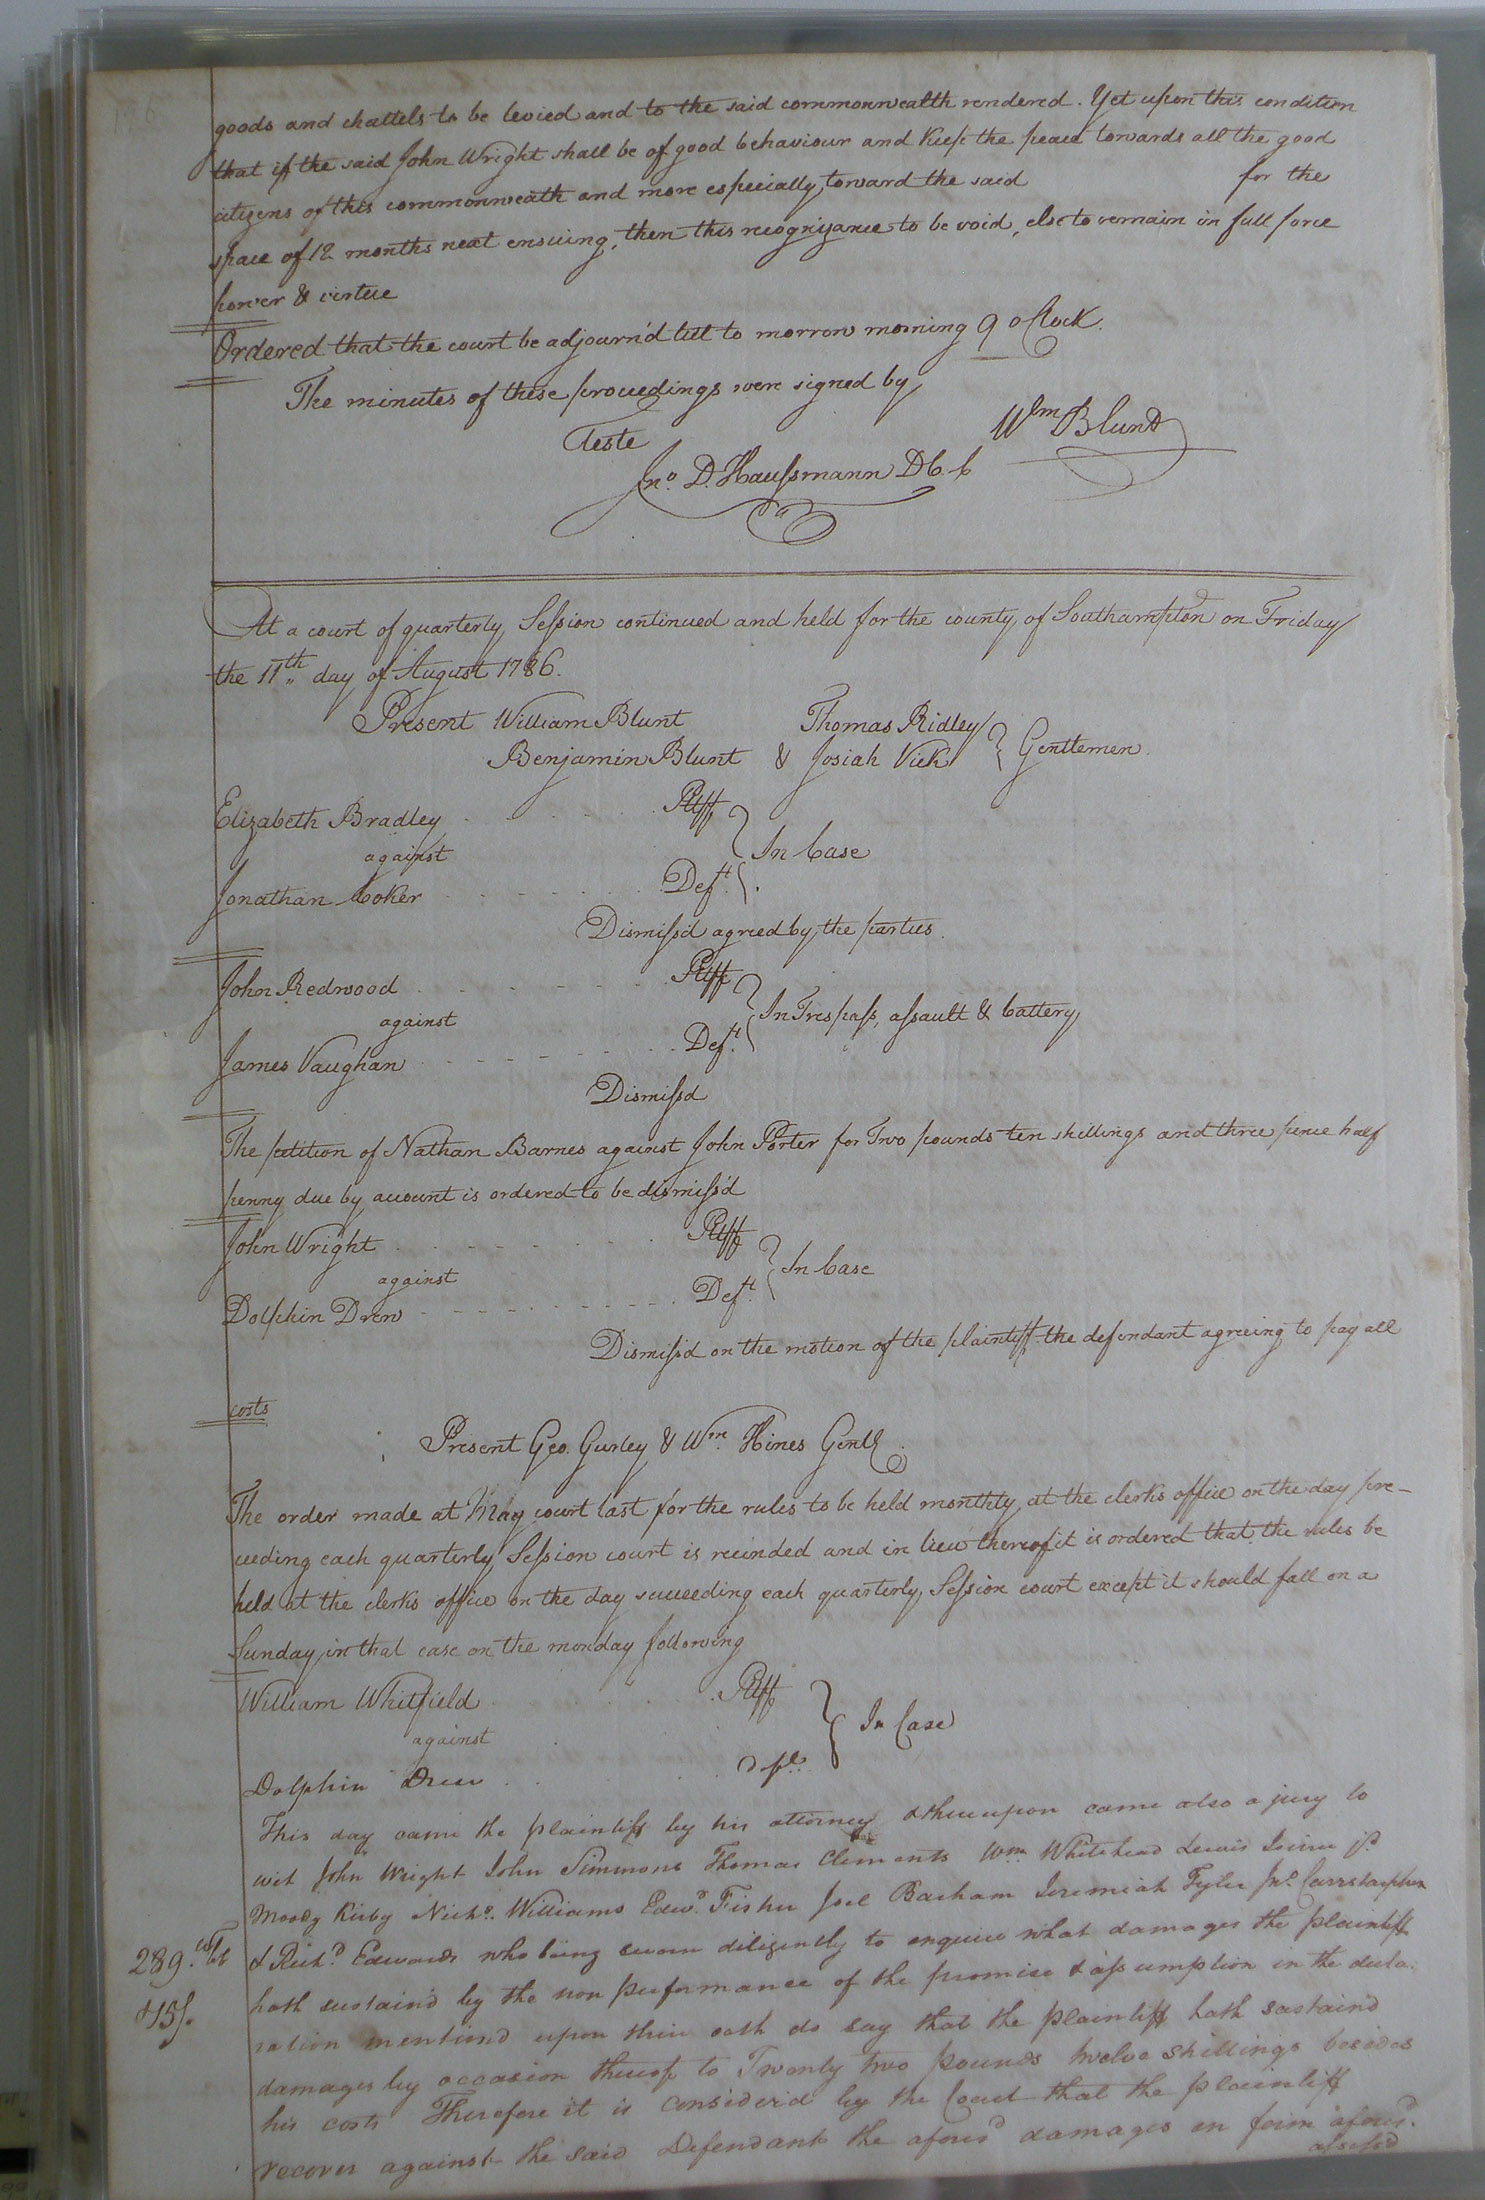 goods and chattels to be levied and to the said commonwealth rendered. Yet upon this condition
that if the said John Wright shall be of good behaviour and Keep the peace towards all the good
citizens of this commonweath and more especially toward the said for the
space of 12 months next ensuing, then this recognizance to be void, else to remain in full force
power & virtue
Ordered that the court be adjourn'd till to morrow morning 9 o Clock.
The minutes of these proceedings were signed by
Wm Blunt
Teste
Jno. D. Haussmann D C. C
At a court of quarterly Session continued and held for the county of Southampton on Friday
the 11th day of August 1786.
Present William Blunt Thomas Ridley
Benjamin Blunt & Josiah Vick } Gentlemen.
Elizabeth Bradley Pltff
against } In Case
Jonathan Coker Deft.
Dismiss'd agreed by the parties.
John Redwood Pltff
against } In Trespass, assault & battery
James Vaughan Deft.
Dismiss'd
The petition of Nathan Barnes against John Porter for Two pounds ten shillings and three pence half
penny due by account is ordered to be dismiss'd
John Wright Pltff
against } In Case
Dolphin Drew Deft.
Dismiss'd on the motion of the plaintiff the defendant agreeing to pay all
costs
Present Geo. Gurley & Wm. Hines Gentl.
The order made at May court last for the rules to be held monthly at the clerks office on the day pre-
ceeding each quarterly Session court is recinded and in lieu thereof it is ordered that the rules be
held at the clerks office on the day succeeding each quarterly Session court except it should fall on a
Sunday, in that case on the monday following
William Whitfield Pltff
against } In Case
Dolphin Drew
This day came the plaintiff by his attorney & thereupon came also a jury to
wit John Wright John Simmons Thomas Clements Wm Whitehead Lewis jr.
Moody Kirby Nichs. Williams Edwd. Fisher Joel Barham Jeremiah Tyler Jno. Carrstarphen
& Richd. Edwards who being sworn diligently to enquire what damages the plaintiff
289.
hath sustain'd by the non performance of the promise & assumption in the decla:
ration mention'd upon their oath do say that the plaintiff hath sustaind
damages by occasion thereof to Twenty two pounds twelve shillings besides
his costs Therefore it is consider'd by the Court that the plaintiff
recover against the said Defendant the aforesd damages in form aforesd.
assess'd